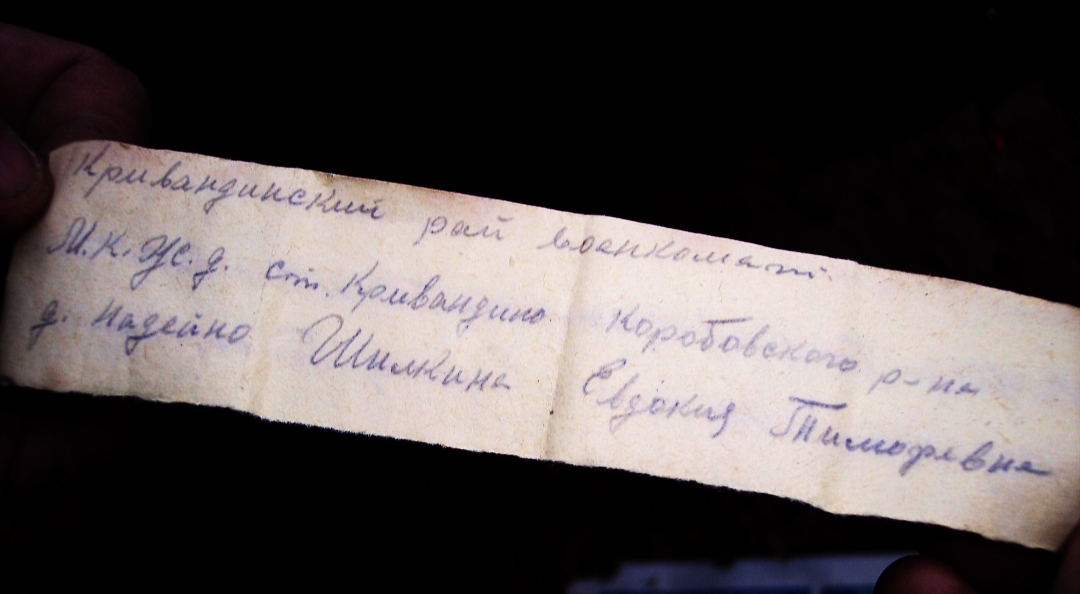 Кривандинский рай военкомат.
М.К.Ж.д. ст. Кривандино Коробовского р-на
д. Надейно Шилкина Евдокия Тимофевна